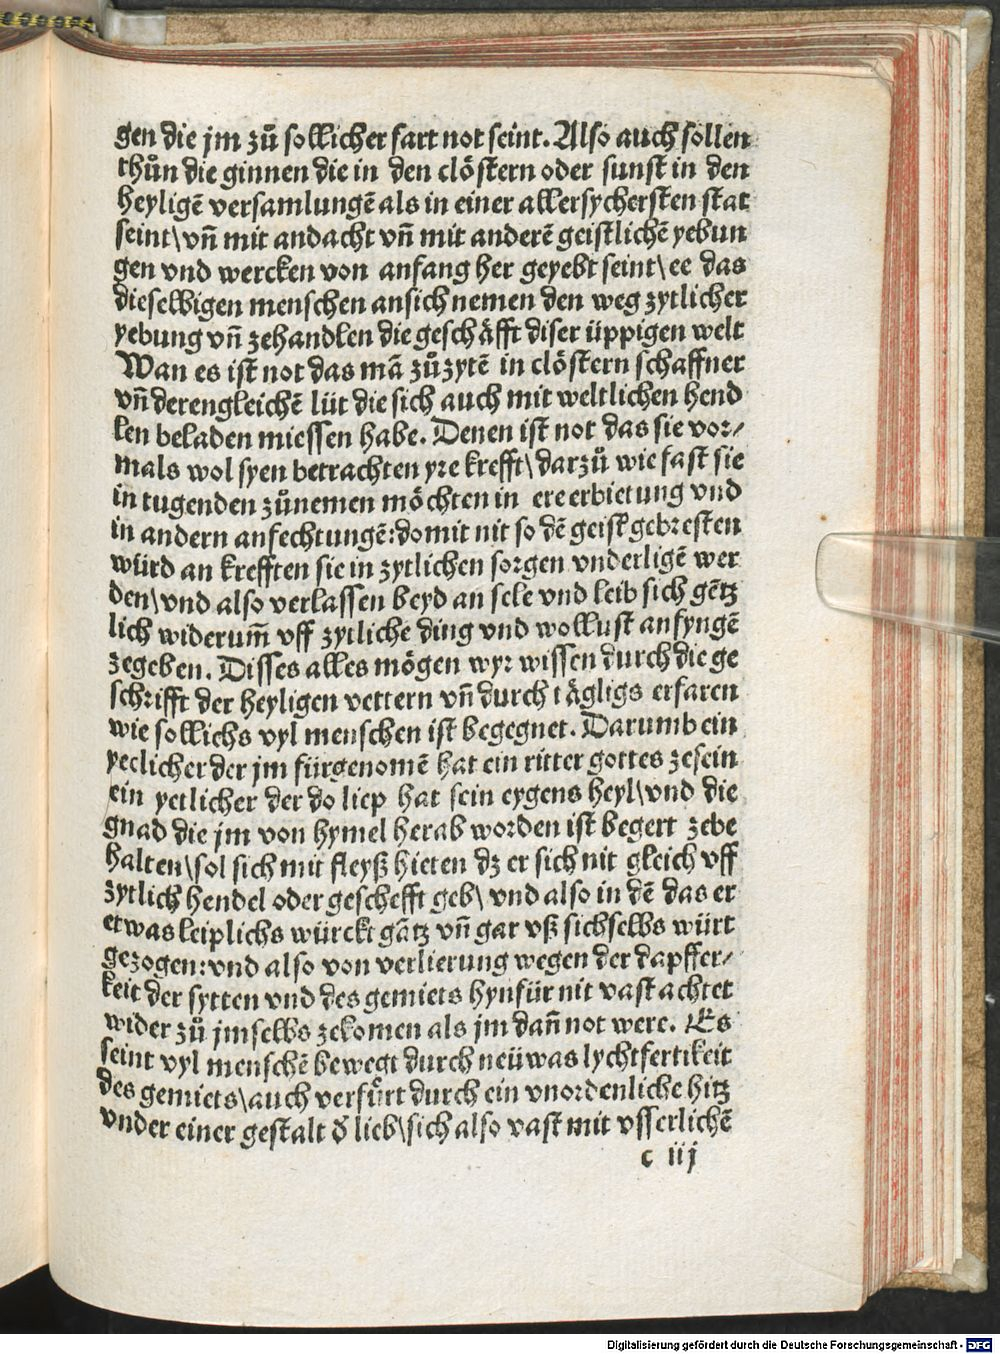 gen die jm zů sollicher fart not seint. Also auch sollen
thůn die ginnen die in den clöstern oder sunst in den
heyligē versamlungē als in einer allersychersten stat
seint\vñ mit andacht vñ mit anderē geistlichē yebun
gen vnd wercken von anfang her geyebt seint\ee das
dieselbigen menschen ansich nemen den weg zytlicher
yebung vñ zehandlen die geschäfft diser üppigen welt
Wan es ist not das mā zůzytē in clöstern schaffner
vñ derengleichē lüt die sich auch mit weltlichen hend
len beladen miessen habe. Denen ist not das sie vor⸗
mals wol syen betrachten yre krefft\darzů wie fast sie
in tugenden zůnemen möchten in ere erbietung vnd
in andern anfechtungē:domit nit so dē geist gebresten
würd an krefften sie in zytlichen sorgen vnderligē wer
den\vnd also verlassen beyd an sele vnd leib sich gētz
lich widerum̃ vff zytliche ding vnd wollust anfyngē
zegeben. Disses alles mögen wyr wissen durch die ge
schrifft der heyligen vettern vñ durch tägligs erfaren
wie sollichs vyl menschen ist begegnet. Darumb ein
yeclicher der jm fürgenomē hat ein ritter gottes zesein
ein yetlicher der do liep hat sein eygens heyl\vnd die
gnad die jm von hymel herab worden ist begert zebe
halten\sol sich mit fleyß hieten dz er sich nit gleich vff
zytlich hendel oder geschefft geb\ vnd also in dē das er
etwas leiplichs würckt gātz vñ gar vß sichselbs würt
gezogen:vnd also von verlierung wegen der dapffer⸗
keit der sytten vnd des gemiets hynfür nit vast achtet
wider zů jmselbs zekomen als jm dañ not were. Es
seint vyl menschē bewegt durch neüwas lychtfertikeit
des gemiets\auch verfůrt durch ein vnordenliche hitz
vnder einer gestalt ď lieb\sich also vast mit vsserlichē
c iij
Digitalisierung gefördert durch die Deutsche Forschungsgemeinschaft - DFG